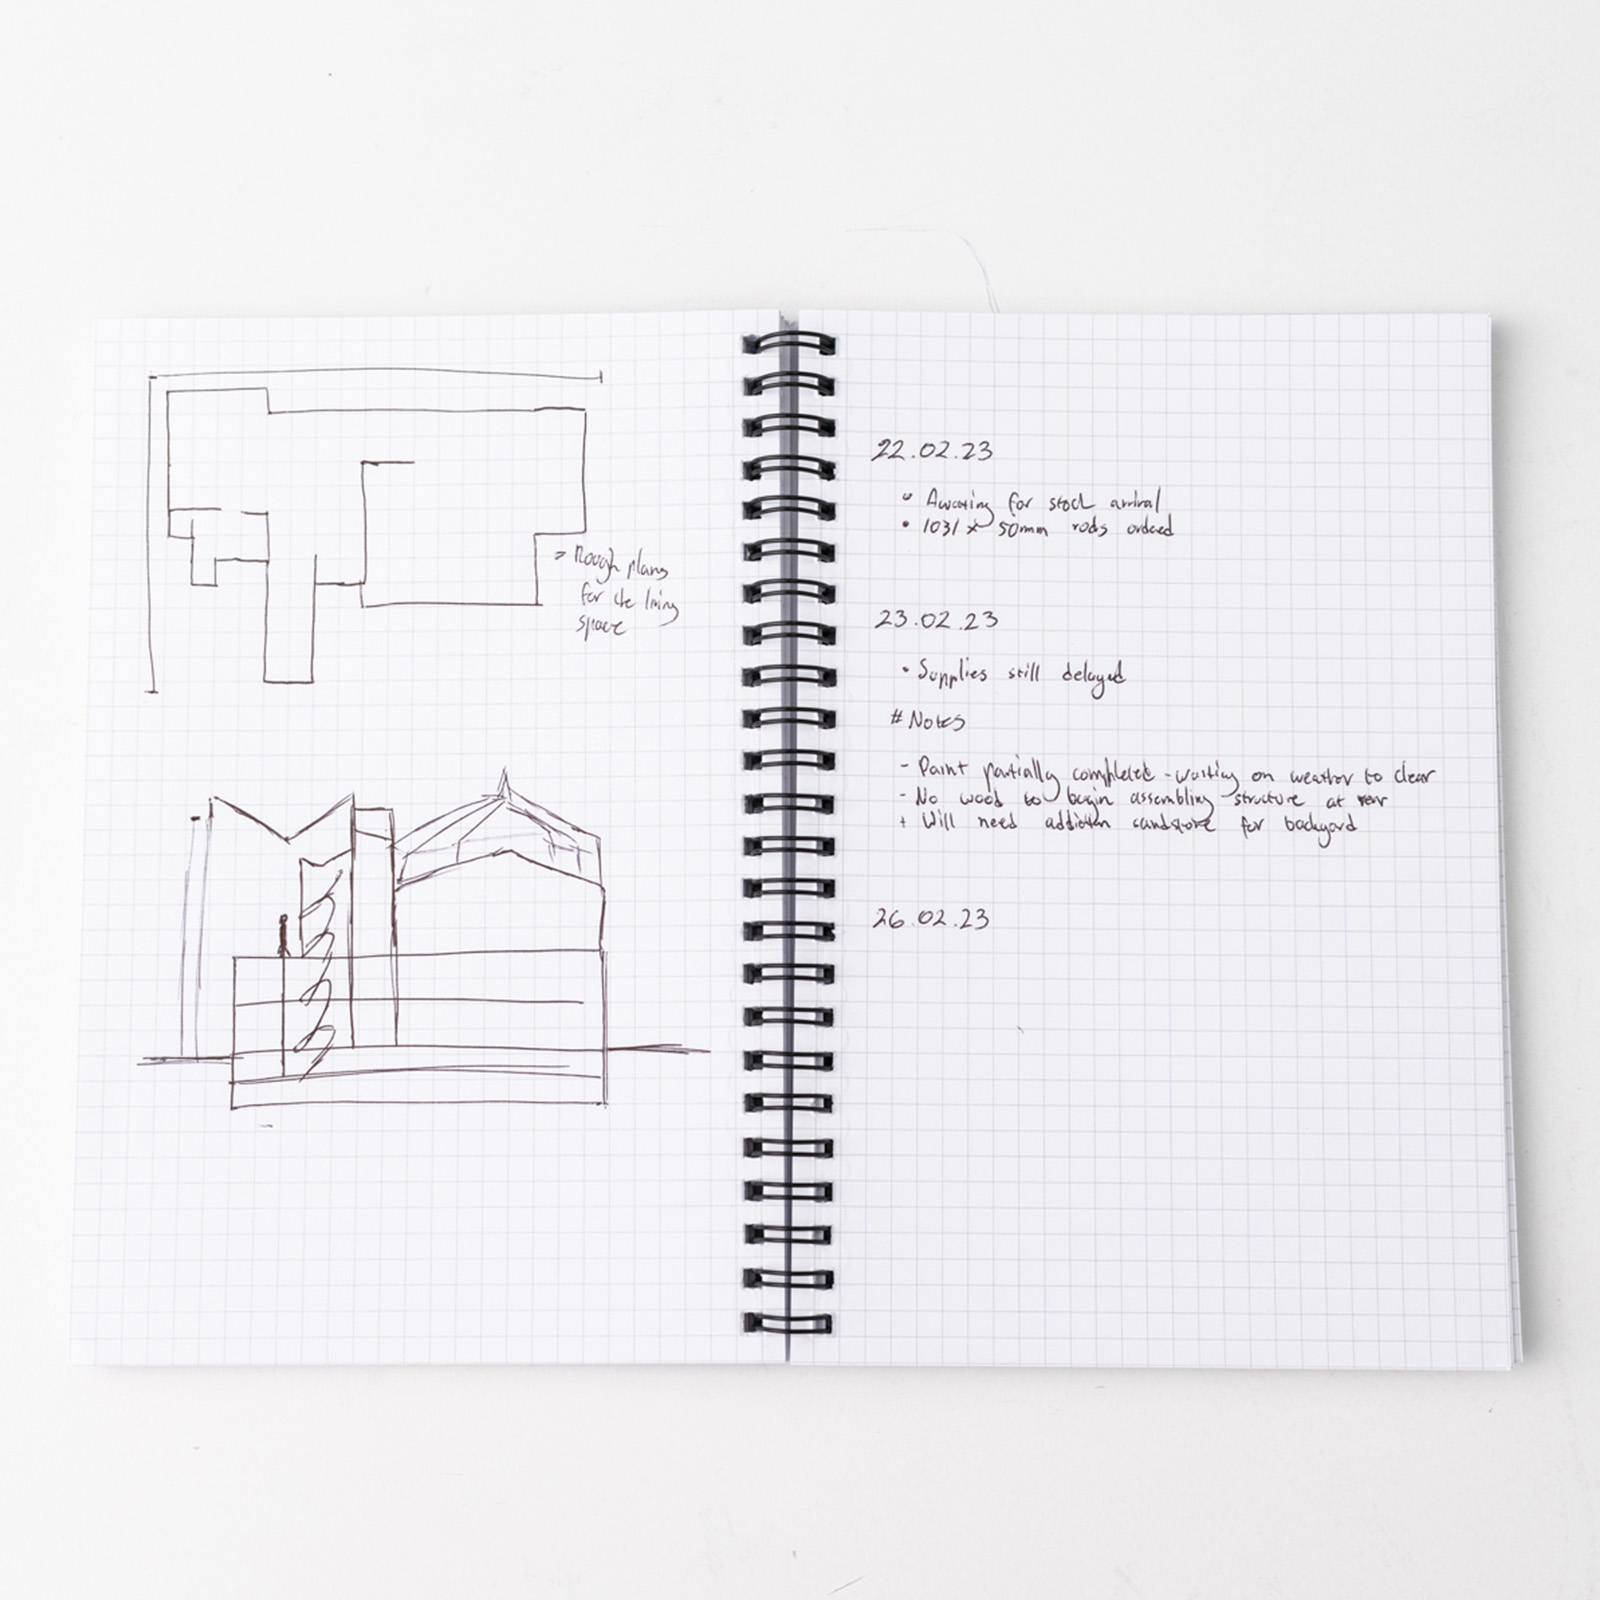 > Rough plans
for the living
space
22.02.23
• Awaiting for stock arrival
• 1031 x 50mm rods ordered
23.02.23
• Supplies still delayed
# Notes
- Paint partially completed - waiting on weather to clear
- No wood to begin assembling structure at rear
+ Will need addition sandstone for backyard
26.02.23